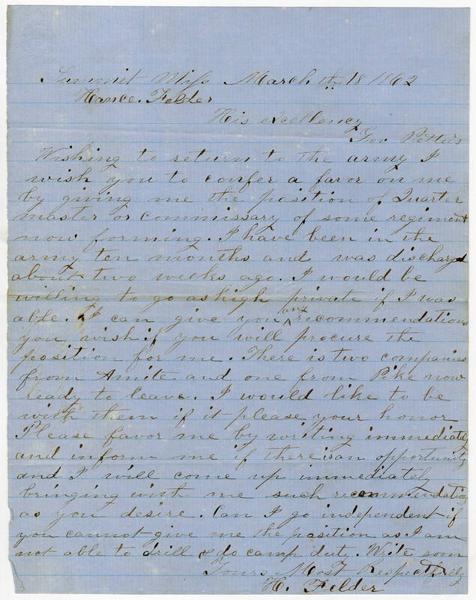 Summit Miss March th 18 1862
Hance. Felder
His excellency
Gov Pettus
Wishing to return to the army I
wish you to confer a favor on me
by giving me the position of Quarter
master or commissary of some regiment
now forming. I have been in the
army ten months and was dischargd
about two weeks ago. I would be
willing to go as high private if I was
able. I can give you any recommendation
you wish if you will procure the
position for me. There is two companies
from Amite and one from Pike now
ready to leave. I would like to be
with them if it please your honor
Please favor me by writing immediately
and inform me if there is an opportunity
and I will come up immediately
bringing with me such recommendation
as you desire. Can I go independent if
you cannot give me the position as I am
not able to drill & do camp dut. Write soon
Yours Most Respectfully
H. Felder